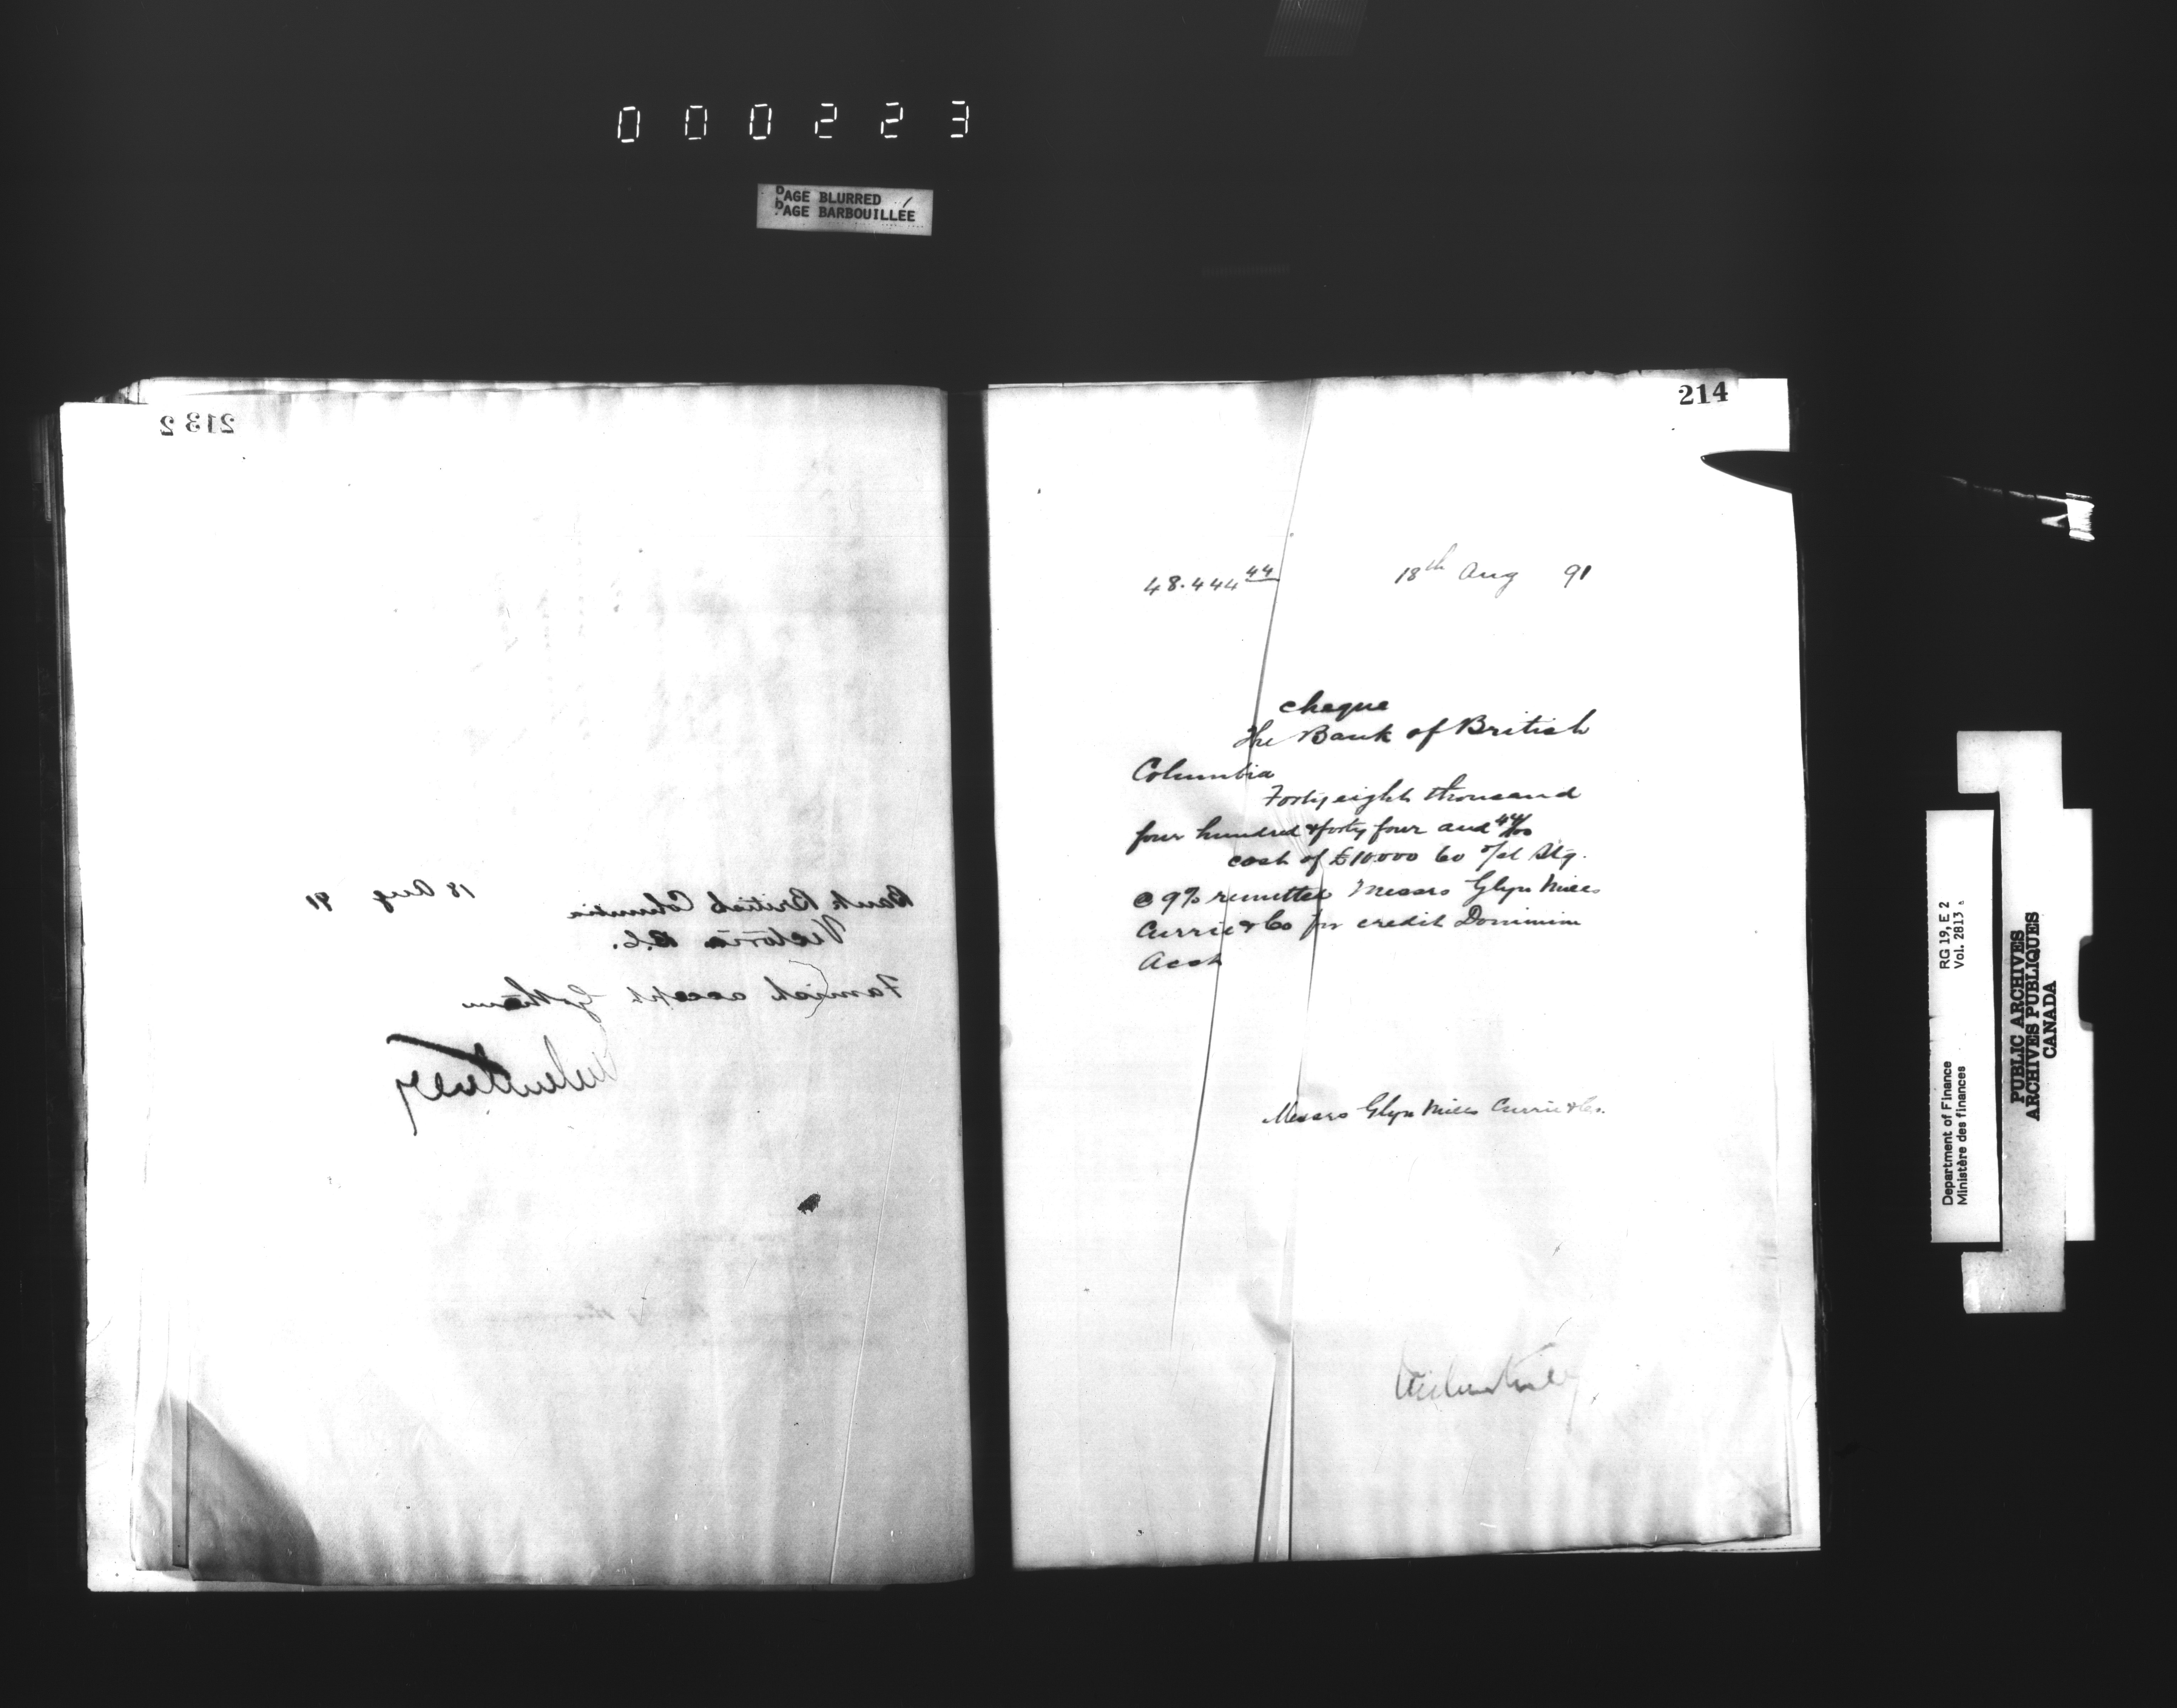 000223
PAGE BLURRED
PAGE BARBOUILLÉE
213 2
18 Aug 91
Bank British Columbia
Victoria B.C.
accept
214
48.444 44 18th Aug 91
cheque
The Bank of British
Columbia
Forty eight thousand
four hundred & forty four and 44/100
cost of £10.000 60 d/d Stg.
@ 9% remitted Messrs Glyn Mills
Currie & Co for credit Dominion
Acct
Messrs Glyn Mills Currie & Co.
RG 19, E 2
Vol. 2813
Department of Finance
Ministère des finances
PUBLIC ARCHIVES
ARCHIVES PUBLIQUES
CANADA